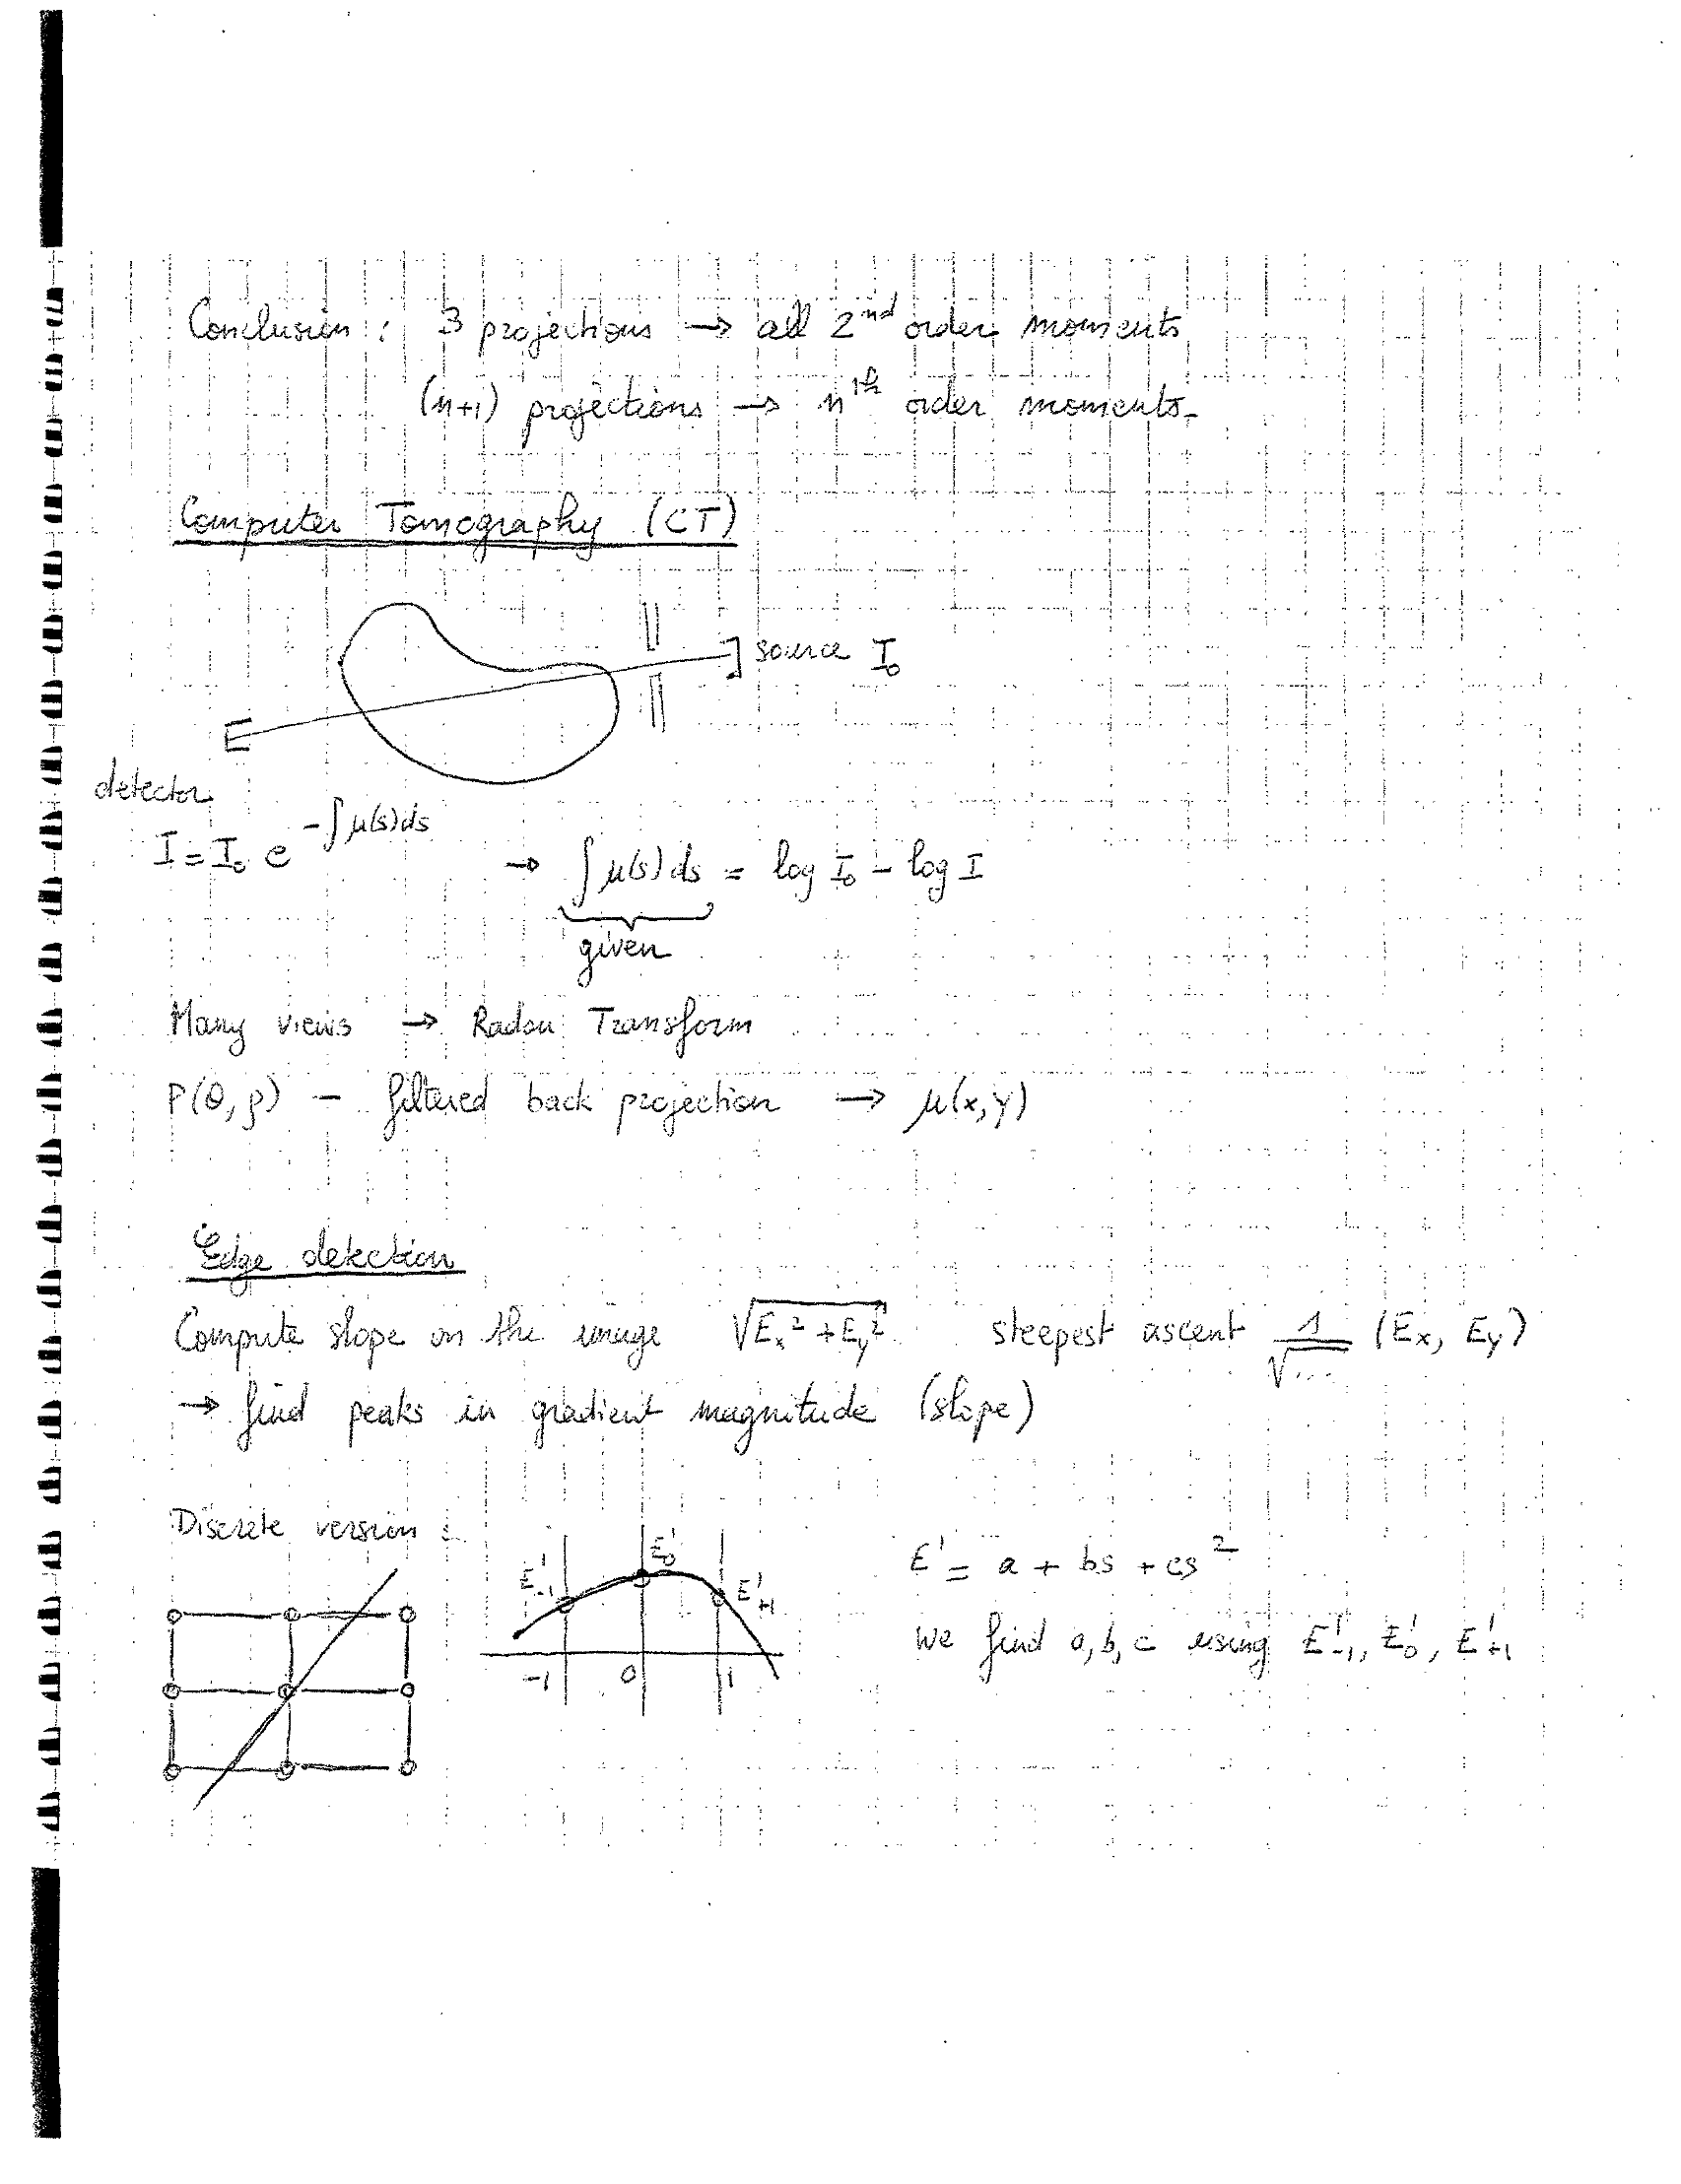 Conclusion : 3 projections → all 2nd order moments
(n+1) projections → nth order moments.
Computer Tomography (CT)
source I₀
detector
I = I₀ e^{-∫μ(s)ds} → ∫μ(s)ds = log I₀ - log I
given
Many views → Radon Transform
P(θ,ρ) - filtered back projection → μ(x,y)
Edge detection
Compute slope on the image √(Eₓ² + E_y²) steepest ascent 1/√... (Eₓ, E_y)
→ find peaks in gradient magnitude (slope)
Discrete version :
E'₋₁ E'₀ E'₊₁
-1 0 1
E' = a + bs + cs²
we find a, b, c using E'₋₁, E'₀, E'₊₁